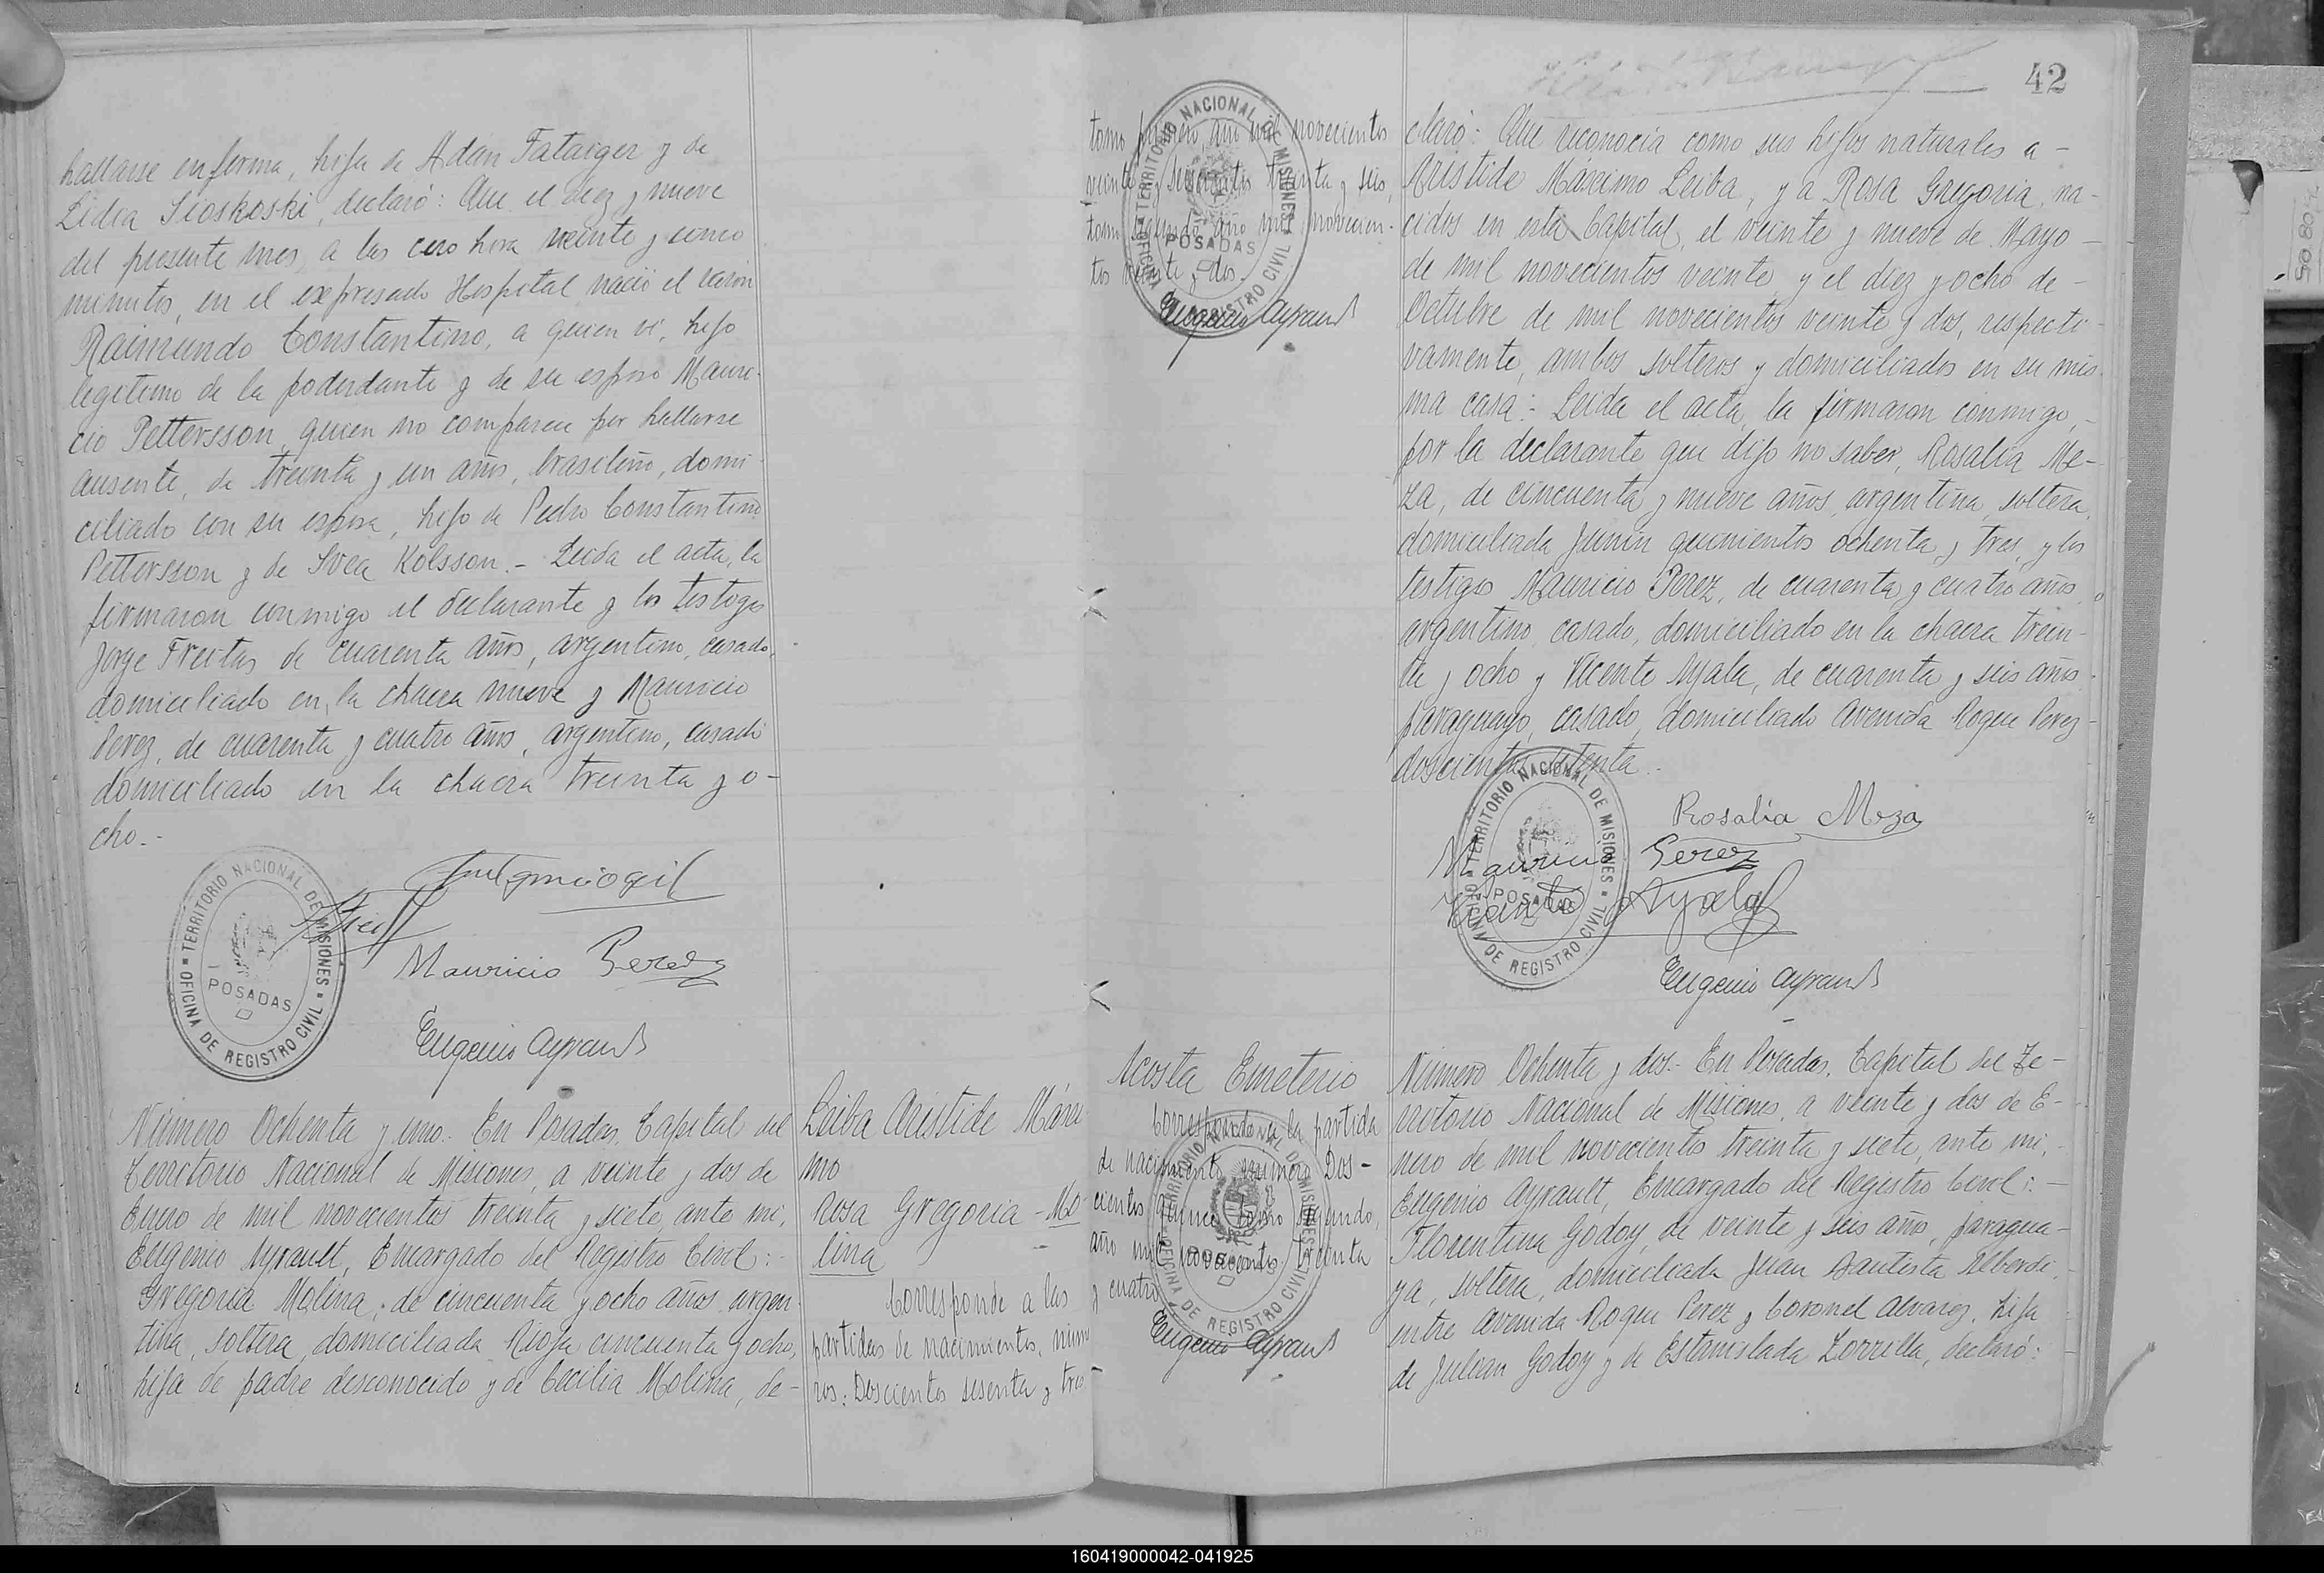 hallarse enferma, hija de Adan Fataiger y de
Lidia Sioskoski, declaró: Que el diez y nueve
del presente mes, a las cero hora veinte y cinco
minutos, en el expresado Hospital nació el varón
Raimundo Constantino, a quien vi, hijo
legitimo de la poderdante y de su esposo Mauri-
cio Pettersson, quien no comparece por hallarse
ausente, de treinta y un años, brasileño, domi-
ciliado con su esposa, hijo de Pedro Constantino
Pettersson y de Svea Kolsson.- Leida el acta, la
firmaron conmigo el declarante y los testigos
Jorge Freitas de cuarenta años, argentino, casado,
domiciliado en la chacra nueve y Mauricio
Perez, de cuarenta y cuatro años, argentino, casado
domiciliado en la chacra treinta y o-
cho.-
Mauricio Perez
Eugenio Ayrault
TERRITORIO NACIONAL DE MISIONES
POSADAS
OFICINA DE REGISTRO CIVIL
Número Ochenta y uno.- En Posadas, Capital del
Territorio Nacional de Misiones, a veinte y dos de
Enero de mil novecientos treinta y siete, ante mi,
Eugenio Ayrault, Encargado del Registro Civil:-
Gregoria Molina, de cincuenta y ocho años, argen-
tina, soltera, domiciliada Rioja cincuenta y ocho,
hija de padre desconocido y de Cecilia Molina, de-
Leiba Aristide Máxi
mo
Rosa Gregoria - Mo-
lina
Corresponde a las
partidas de nacimientos, núme
ros: Doscientos sesenta y tres-
42
tomo primero, año mil novecientos
veinte y seiscientos treinta y seis,
tomo segundo año mil novecien-
tos veinte y dos.
Eugenio Ayrault
TERRITORIO NACIONAL DE MISIONES
POSADAS
OFICINA DE REGISTRO CIVIL
claró: Que reconocia como sus hijos naturales a -
Aristide Máximo Leiba, y a Rosa Gregoria, na-
cidos en esta Capital, el veinte y nueve de Mayo -
de mil novecientos veinte, y el diez y ocho de -
Octubre de mil novecientos veinte y dos, respecti-
vamente, ambos solteros y domiciliados en su mis-
ma casa:- Leida el acta, la firmaron conmigo, -
por la declarante que dijo no saber, Rosalia Me-
za, de cincuenta y nueve años, argentina, soltera,
domiciliada Junin quinientos ochenta y tres, y los
testigos Mauricio Perez, de cuarenta y cuatro años,
argentino, casado, domiciliado en la chacra trein-
ta y ocho y Vicente Ayala, de cuarenta y seis años,
paraguayo, casado, domiciliado Avenida Roque Perez -
doscientos setenta.-
Rosalia Meza
Mauricio Perez
Vicente Ayala
Eugenio Ayrault
TERRITORIO NACIONAL DE MISIONES
POSADAS
OFICINA DE REGISTRO CIVIL
Acosta Emeterio
Corresponde a la partida
de nacimiento número Dos-
cientos quince tomo segundo,
año mil novecientos treinta
y cuatro
Eugenio Ayrault
TERRITORIO NACIONAL DE MISIONES
POSADAS
OFICINA DE REGISTRO CIVIL
Número Ochenta y dos.- En Posadas, Capital del Te-
rritorio Nacional de Misiones, a veinte y dos de E-
nero de mil novecientos treinta y siete, ante mi,
Eugenio Ayrault, Encargado del Registro Civil:-
Florentina Godoy, de veinte y seis año, paragua-
ya, soltera, domiciliada Juan Bautista Alberdi,
entre Avenida Roque Perez y Coronel Alvarez, hija
de Julian Godoy y de Estanislada Zorrilla, declaró:
160419000042-041925